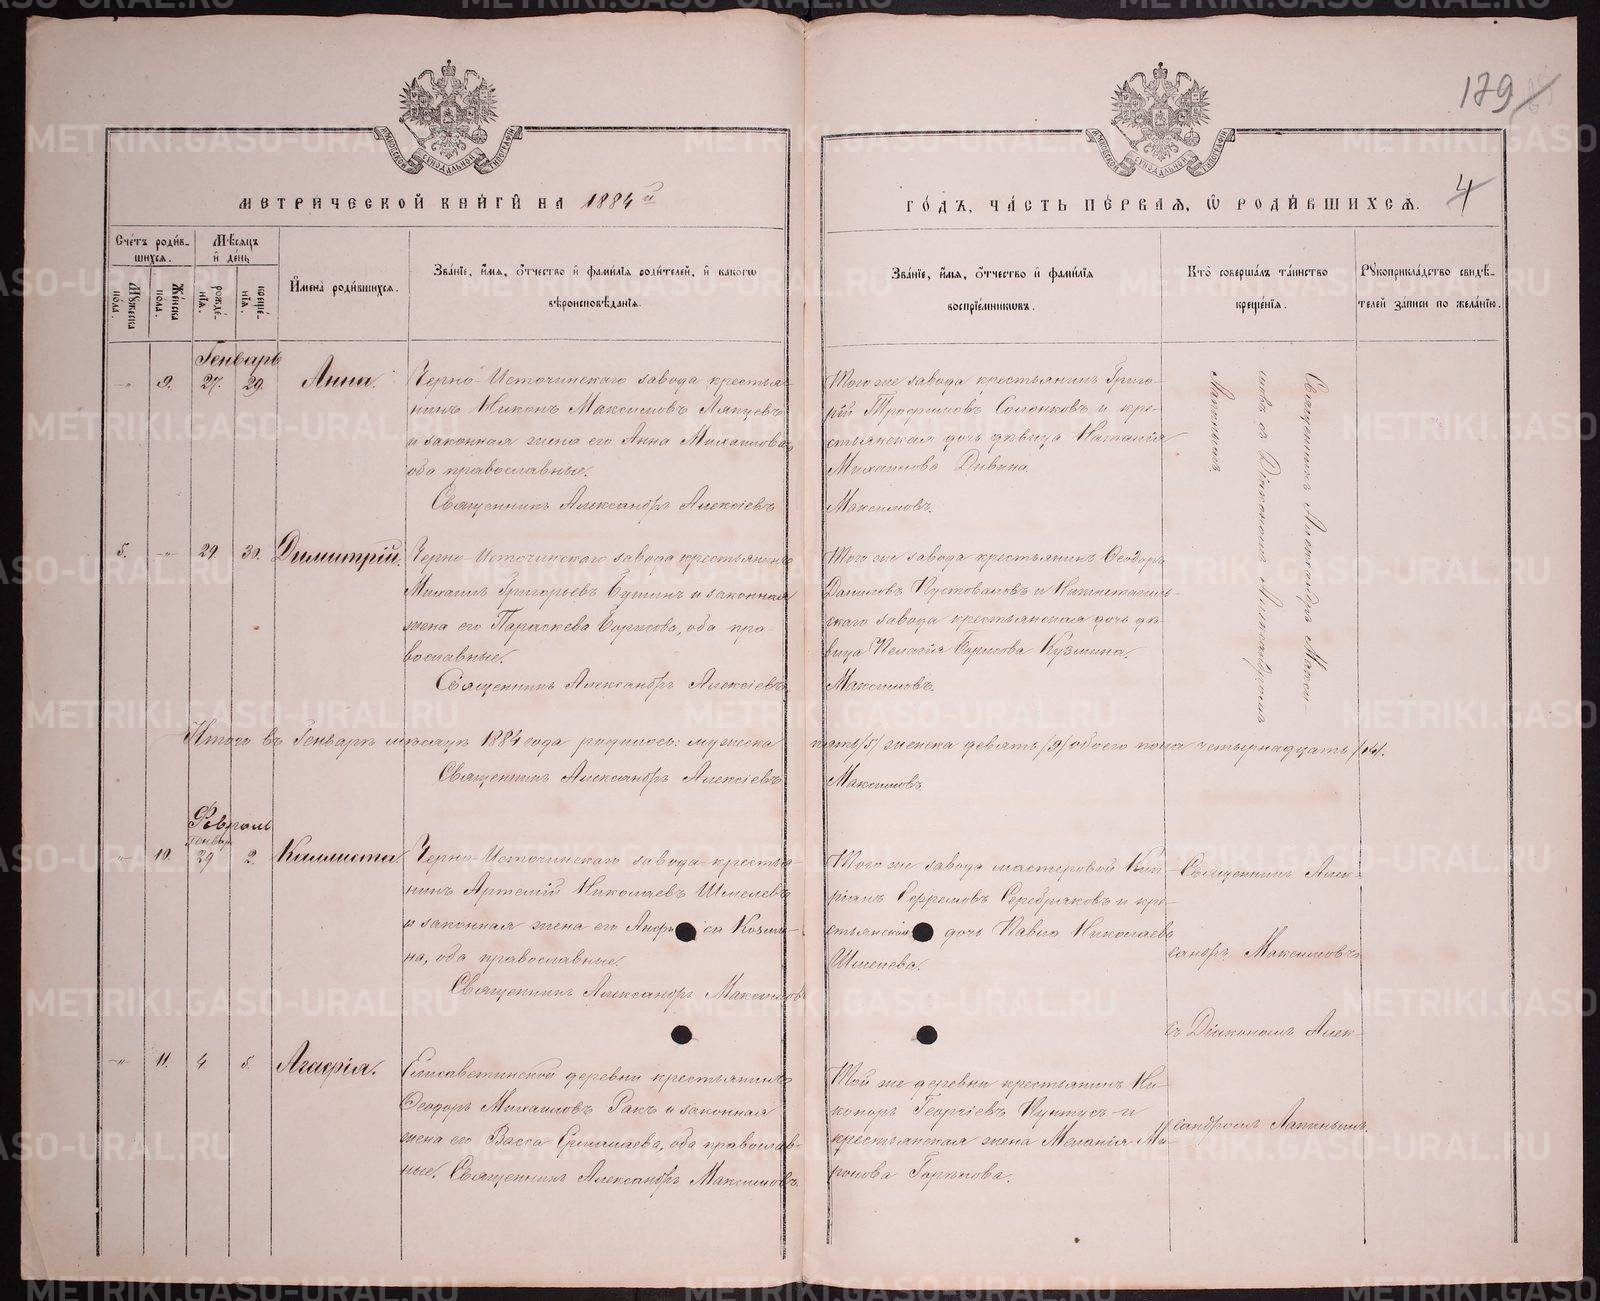 179
4
МОСКОВСКОЙ СѴНОДАЛЬНОЙ ТИПОГРАФІИ
МОСКОВСКОЙ СѴНОДАЛЬНОЙ ТИПОГРАФІИ
МЕТРИЧЕСКОЙ КНИГИ НА 1884й
ГОДЪ, ЧАСТЬ ПЕРВАЯ, Ѡ РОДИВШИХСЯ.
Счетъ родив-
шихся.
Мужеска пола.
Женска пола.
Мѣсяцъ
и день
рожде-
нія.
креще-
нія.
Имена родившихся.
Званіе, имя, отчество и фамилія родителей, и какогѡ
вѣроисповѣданія.
Званіе, имя, отчество и фамилія
воспріемниковъ.
Кто совершалъ таинство
крещенія.
Рукоприкладство свидѣ-
телей записи по желанію.
Генварь
-"- 9. 27. 29. Анна.
Черно-Источинскаго завода крестья-
нинъ Никонъ Максимовъ Ляпцевъ
и законная жена его Анна Михаилова,
оба православные.
Священникъ Александръ Алексіевъ
Того же завода крестьянинъ Григо-
рій Трофимовъ Солонковъ и кре-
стьянская дочь дѣвица Наталія
Михаилова Дивина.
Максимовъ.
Священникъ Александръ Макси-
мовъ съ Діакономъ Александромъ
Лапинымъ.
5. -"- 29. 30. Димитрій.
Черно-Источинскаго завода крестьянинъ
Михаилъ Григорьевъ Бушинъ и законная
жена его Параскева Борисова, оба пра-
вославные.
Священникъ Александръ Алексіевъ
Того же завода крестьянинъ Ѳеодоръ
Даниловъ Пустоваловъ и Нижнетагиль-
скаго завода крестьянская дочь дѣ-
вица Пелагія Борисова Кузмина.
Максимовъ.
Итого въ Генварѣ мѣсяцѣ 1884 года родилось: мужеска
пять /5/ женска девять /9/ обоего пола четырнадцать /14/.
Священникъ Александръ Алексіевъ
Максимовъ.
Февраль
Генвар.
-"- 10. 29 2. Каллиста.
Черно-Источинскаго завода крестья-
нинъ Артемій Николаевъ Шмелевъ
и законная жена его Анфиса Козми-
на, оба православные.
Священникъ Александръ Максимовъ
Того же завода мастеровой Кип-
ріанъ Ефремовъ Серебряковъ и кре-
стьянская дочь Павла Николаева
Шмелева.
Священникъ Алек-
сандръ Максимовъ
съ Діакономъ Алек-
сандромъ Лапинымъ.
-"- 11. 4 5. Агафія.
Елисаветинской деревни крестьянинъ
Ѳеодоръ Михаиловъ Ракъ и законная
жена его Васса Ермолаева, оба православ-
ные. Священникъ Александръ Максимовъ
Той же деревни крестьянинъ Ни-
коноръ Георгіевъ Кунтусъ и
крестьянская жена Меланія Ми-
ронова Горѣлова.